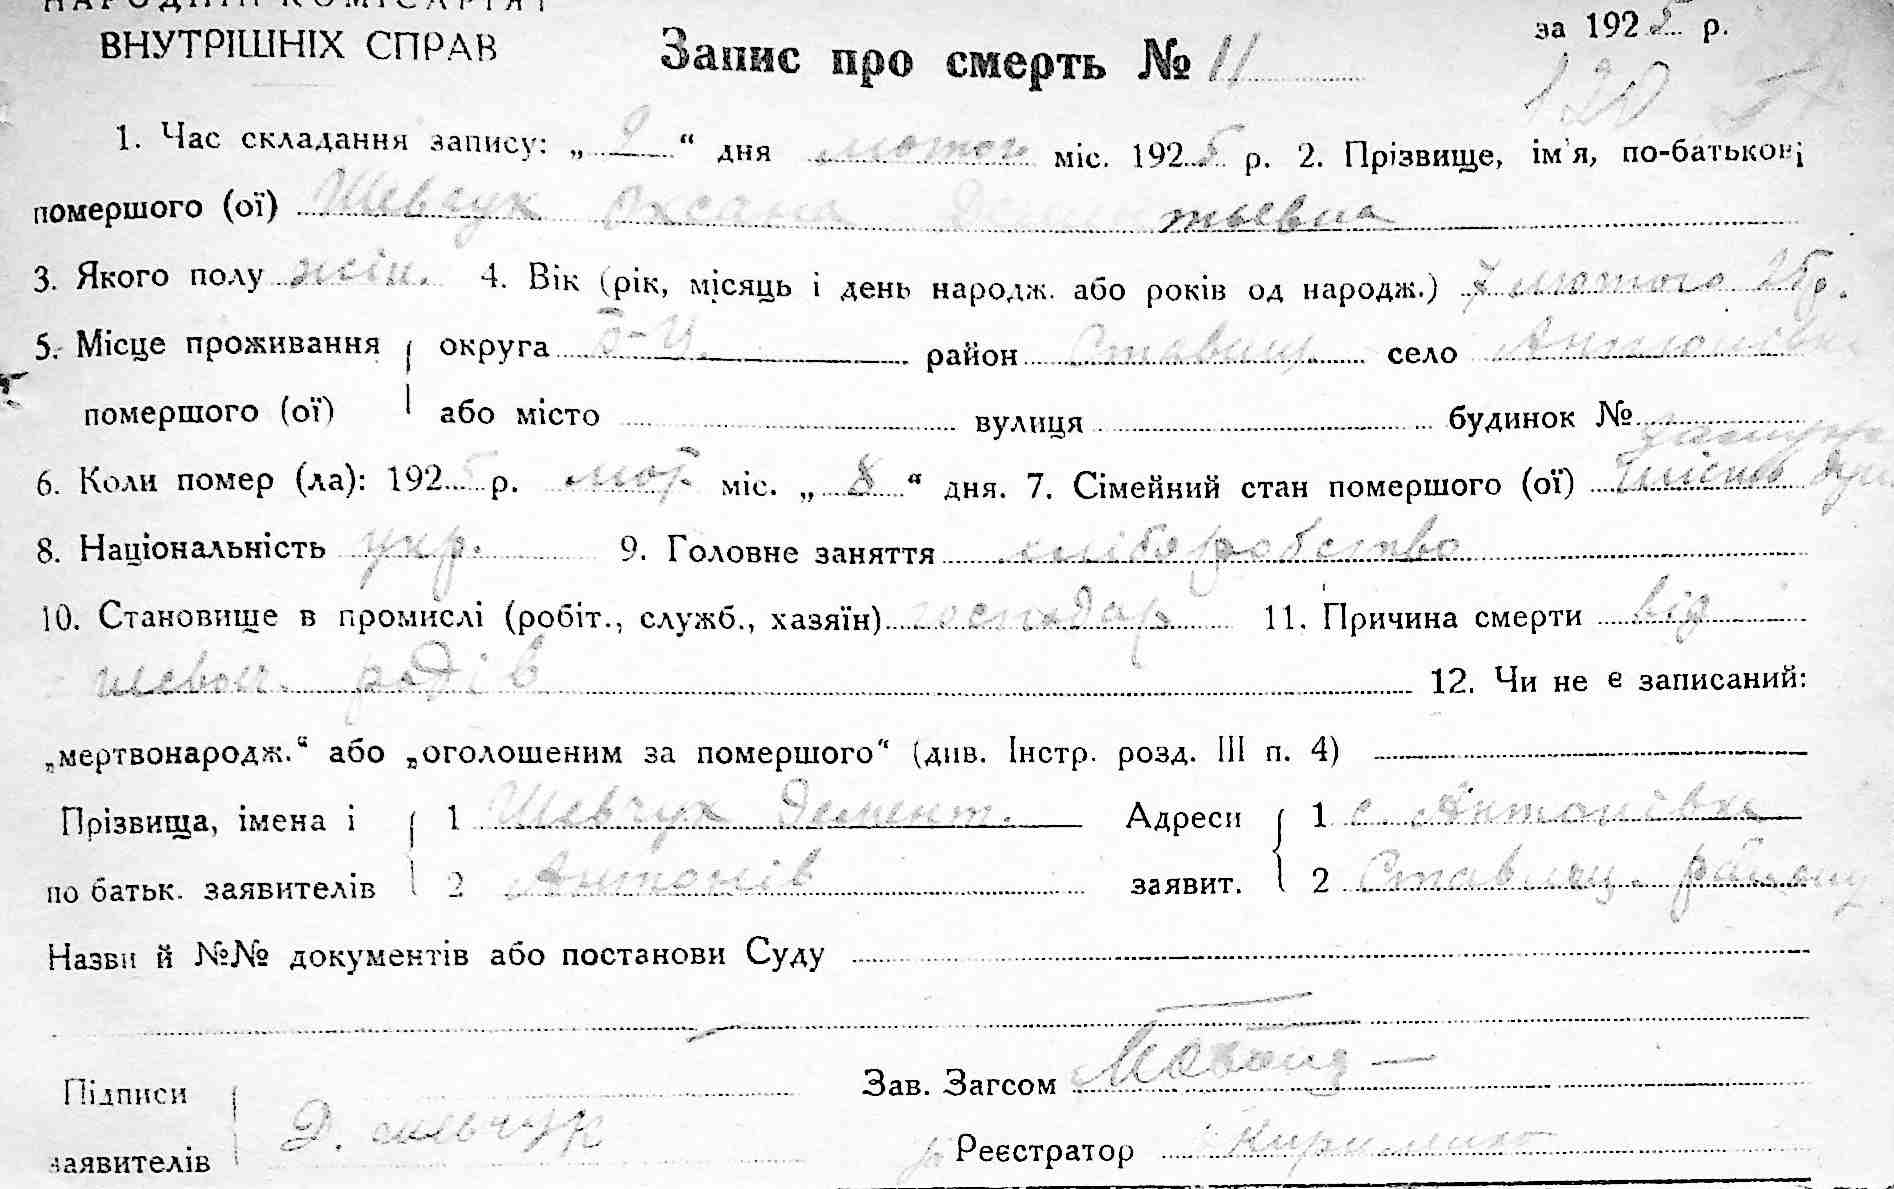 НАРОДНІЙ КОМІСАРІЯТ
ВНУТРІШНІХ СПРАВ
Запис про смерть № 11
за 1925 р.
120
1. Час складання запису: „ 9 “ дня лютог міс. 1925 р. 2. Прізвище, ім'я, по-батькові
помершого (ої) Шевчук Оксана Дементьевна
3. Якого полу жін. 4. Вік (рік, місяць і день народж. або років од народж.) 7 лютого 25 р.
5. Місце проживання округа Б-Ц. район Ставищ. село Антонівка
помершого (ої) або місто вулиця будинок №
6. Коли помер (ла): 1925 р. лют. міс. „ 8 “ дня. 7. Сімейний стан помершого (ої)
8. Національність укр. 9. Головне заняття хліборобство
10. Становище в промислі (робіт., служб., хазяїн) господар 11. Причина смерти від
родів 12. Чи не є записаний:
„мертвонародж.“ або „оголошеним за помершого“ (див. Інстр. розд. III п. 4)
Прізвища, імена і 1 Шевчук Демент. Адреси 1 с. Антонівка
по батьк. заявителів 2 Антонів заявит. 2 Ставищ. району
Назви й №№ документів або постанови Суду
Підписи Зав. Загсом
заявителів Д. Реєстратор